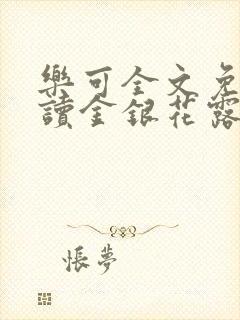 樂可全文免
讀金銀花露
悵夢